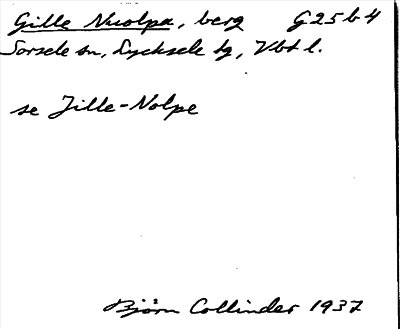 Gille Nuolpa, berg G25b4
Sorsele sn, Lycksele lg, Vbt l.
se Jille-Nolpe
Björn Collinder 1937